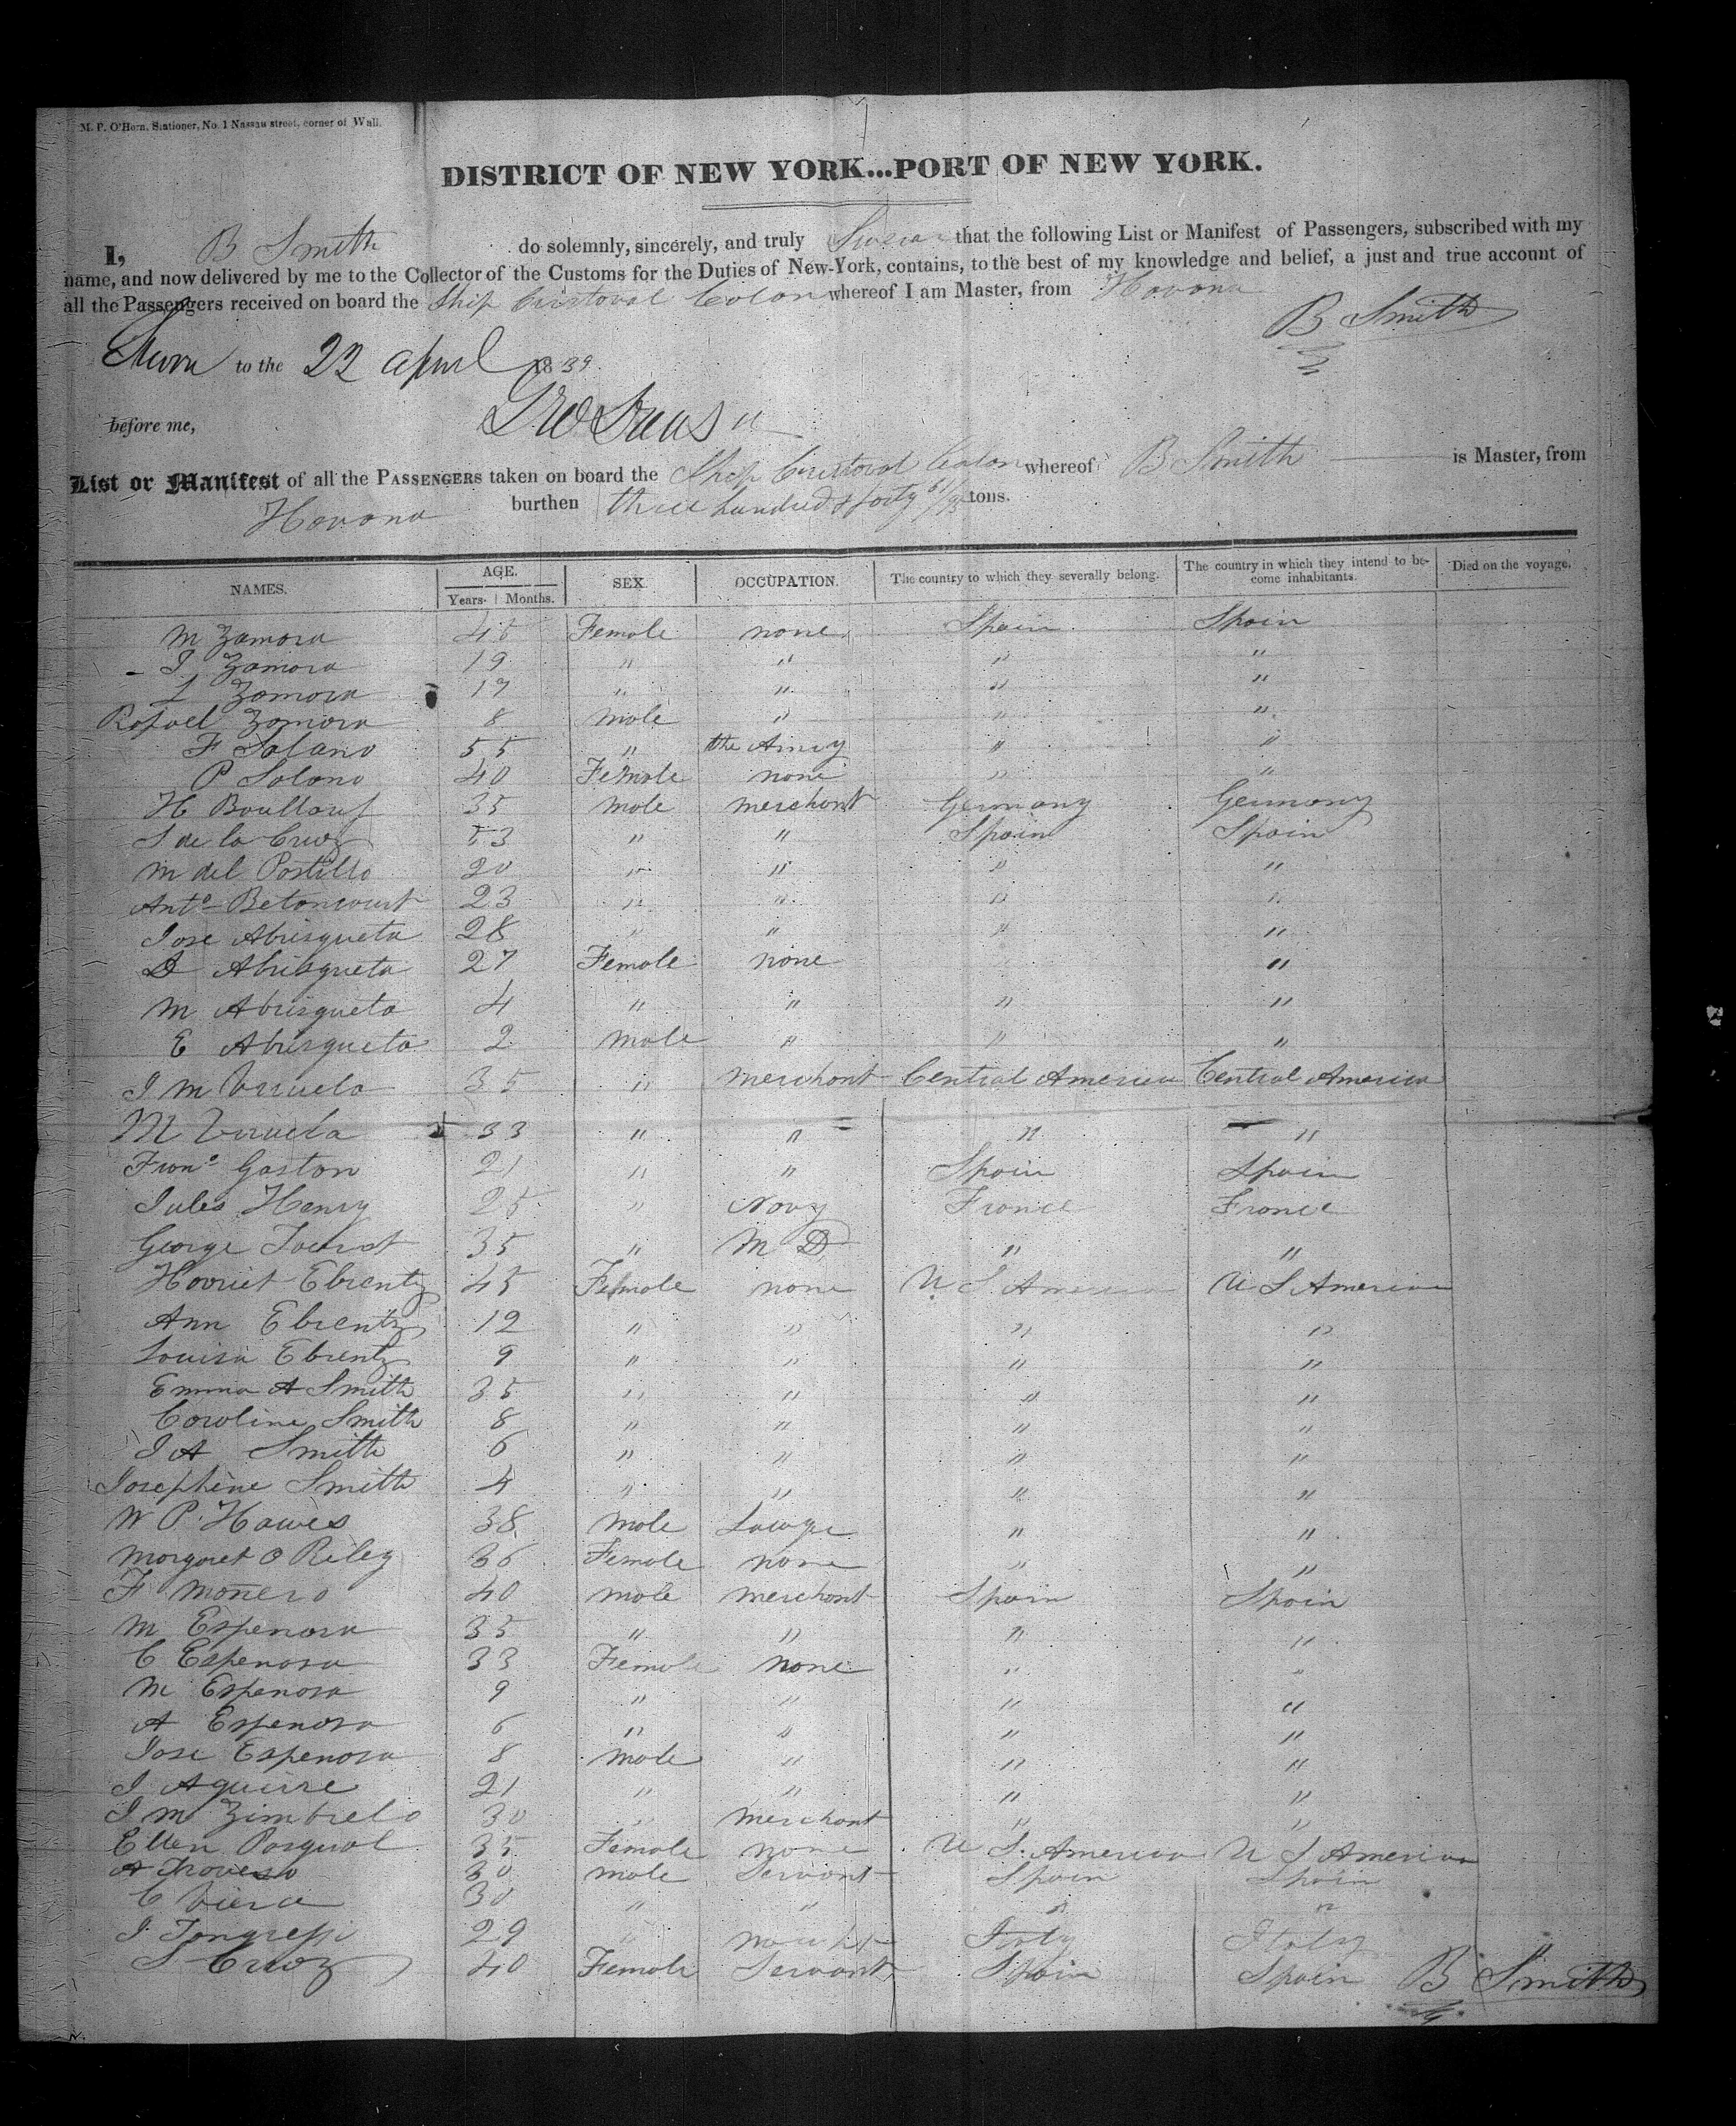 M. P. O'Horn, Stationer, No. 1 Nassau street, corner of Wall.
DISTRICT OF NEW YORK...PORT OF NEW YORK.
I, B Smith do solemnly, sincerely, and truly Swear that the following List or Manifest of Passengers, subscribed with my
name, and now delivered by me to the Collector of the Customs for the Duties of New-York, contains, to the best of my knowledge and belief, a just and true account of
all the Passengers received on board the Ship Cristoval Colon whereof I am Master, from Havana
B Smith
Sworn to the 22 April 1839
before me,
List or Manifest of all the PASSENGERS taken on board the Ship Cristoval Colon whereof B Smith is Master, from
Havana burthen three hundred & forty 61/95 tons.
NAMES. AGE. Years. Months. SEX. OCCUPATION. The country to which they severally belong. The country in which they intend to become inhabitants. Died on the voyage.
M Zamora 45 Female none Spain Spain
J Zamora 19 " " " "
L Zamora 17 " " " "
Rafael Zamora 8 male " " "
F Solano 55 " the Army " "
P Solano 40 Female none " "
H 35 male merchant Germany Germany
S de la Cruz 53 " " Spain Spain
M del Postillo 20 " " " "
Anto Betoncourt 23 " " " "
Jose Abrisqueta 28 " " " "
D Abrisqueta 27 Female none "
M Abrisqueta 4 " " " "
E Abrisqueta 2 male " " "
J M Urruela 35 " merchant Central America Central America
M Urruela 33 " " " "
Franco Gaston 21 " " Spain Spain
Jules Henry 25 " Navy France France
George 35 " M D " "
Harriet Ebrentz 45 Female none U S. America U S America
Ann Ebrentz 12 " " " "
Louisa Ebrentz 9 " " " "
Emma A Smith 35 " " " "
Caroline Smith 8 " " " "
J A Smith 6 " " " "
Josephine Smith 4 " " " "
W P. Hawes 38 male " "
Margaret O Riley 36 Female none " "
F Moñero 40 male merchant Spain Spain
M Espenosa 35 " " " "
C Espenosa 33 Female none " "
M Espenosa 9 " " " "
A Espenosa 6 " " " "
Jose Espenosa 8 male " " "
J Aguirre 21 " " " "
J M Zimbrelo 30 " merchant " "
Ellen Pasqual 35 Female none U S. America U S America
A 30 male Servant Spain Spain
C 30 " " " "
J 29 " Italy Italy
S Cruz 40 Female Servant Spain Spain
B Smith